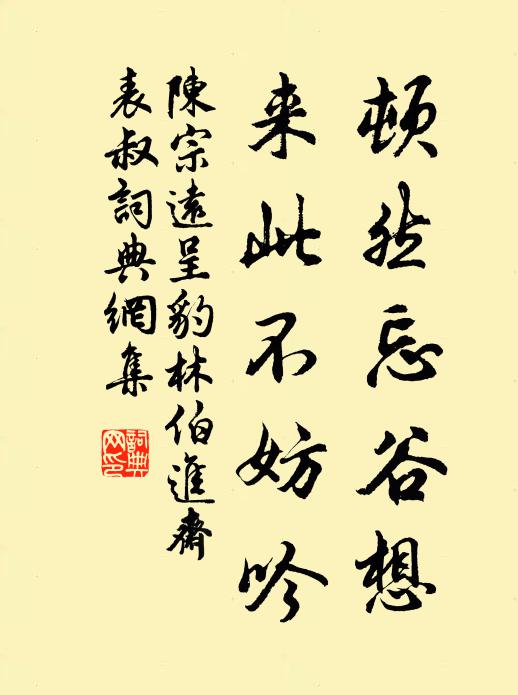 頓然忘谷想
来此不妨吟
陳宗遠呈豹林伯進齋
表叔詞典網集
詞典网印